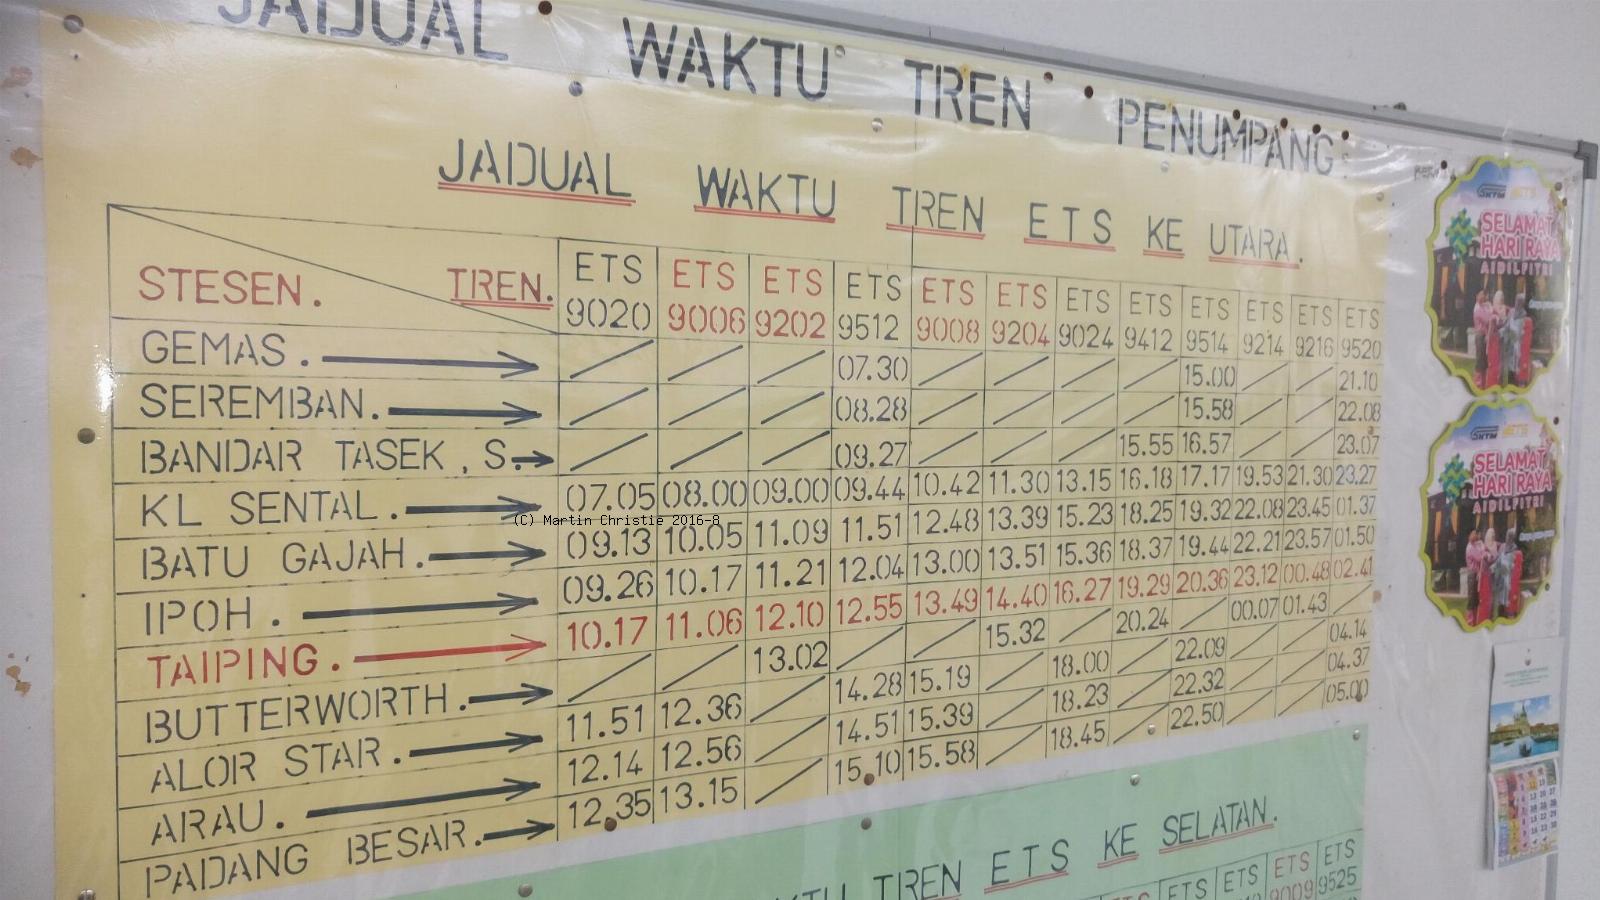 JADUAL WAKTU TREN PENUMPANG
JADUAL WAKTU TREN ETS KE UTARA.
STESEN. TREN. ETS ETS ETS ETS ETS ETS ETS ETS ETS ETS ETS ETS
9020 9006 9202 9512 9008 9204 9024 9412 9514 9214 9216 9520
GEMAS. / / / 07.30 / / / / 15.00 / / 21.10
SEREMBAN. / / / 08.28 / / / / 15.58 / / 22.08
BANDAR TASEK, S. / / / 09.27 / / / 15.55 16.57 / / 23.07
KL SENTAL. 07.05 08.00 09.00 09.44 10.42 11.30 13.15 16.18 17.17 19.53 21.30 23.27
(C) Martin Christie 2016-8
BATU GAJAH. 09.13 10.05 11.09 11.51 12.48 13.39 15.23 18.25 19.32 22.08 23.45 01.37
IPOH. 09.26 10.17 11.21 12.04 13.00 13.51 15.36 18.37 19.44 22.21 23.57 01.50
TAIPING. 10.17 11.06 12.10 12.55 13.49 14.40 16.27 19.29 20.36 23.12 00.48 02.41
BUTTERWORTH. / / 13.02 / / 15.32 / 20.24 / 00.07 01.43 /
ALOR STAR. 11.51 12.36 / 14.28 15.19 / 18.00 / 22.09 / / 04.14
ARAU. 12.14 12.56 / 14.51 15.39 / 18.23 / 22.32 / / 04.37
PADANG BESAR. 12.35 13.15 / 15.10 15.58 / 18.45 / 22.50 / / 05.00
TREN ETS KE SELATAN.
ETS ETS ETS ETS ETS
9009 9525
SELAMAT
HARI RAYA
AIDILFITRI
SELAMAT
HARI RAYA
AIDILFITRI